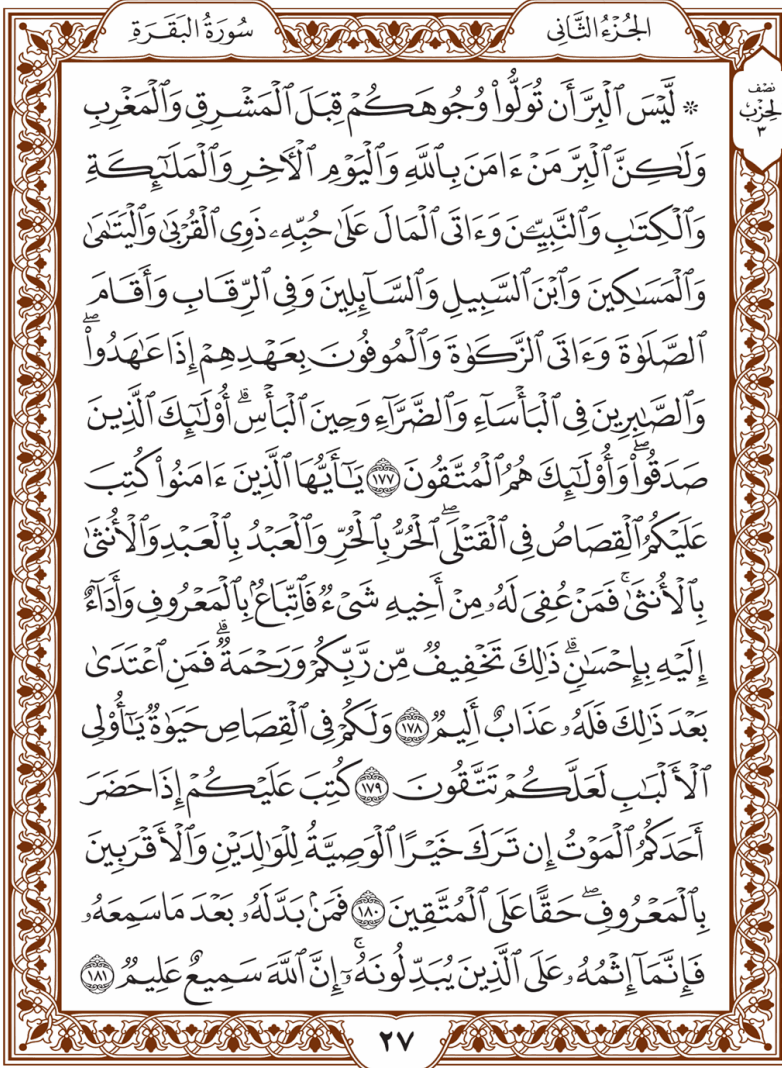 الجُزْءُ الثَّانِى
سُورَةُ البَقَرَةِ
نصف
الحزب
٣
۞ لَّيْسَ ٱلْبِرَّ أَن تُوَلُّوا۟ وُجُوهَكُمْ قِبَلَ ٱلْمَشْرِقِ وَٱلْمَغْرِبِ
وَلَـٰكِنَّ ٱلْبِرَّ مَنْ ءَامَنَ بِٱللَّهِ وَٱلْيَوْمِ ٱلْـَٔاخِرِ وَٱلْمَلَـٰٓئِكَةِ
وَٱلْكِتَـٰبِ وَٱلنَّبِيِّـۧنَ وَءَاتَى ٱلْمَالَ عَلَىٰ حُبِّهِۦ ذَوِى ٱلْقُرْبَىٰ وَٱلْيَتَـٰمَىٰ
وَٱلْمَسَـٰكِينَ وَٱبْنَ ٱلسَّبِيلِ وَٱلسَّآئِلِينَ وَفِى ٱلرِّقَابِ وَأَقَامَ
ٱلصَّلَوٰةَ وَءَاتَى ٱلزَّكَوٰةَ وَٱلْمُوفُونَ بِعَهْدِهِمْ إِذَا عَـٰهَدُوا۟ۖ
وَٱلصَّـٰبِرِينَ فِى ٱلْبَأْسَآءِ وَٱلضَّرَّآءِ وَحِينَ ٱلْبَأْسِۗ أُو۟لَـٰٓئِكَ ٱلَّذِينَ
صَدَقُوا۟ۖ وَأُو۟لَـٰٓئِكَ هُمُ ٱلْمُتَّقُونَ ١٧٧ يَـٰٓأَيُّهَا ٱلَّذِينَ ءَامَنُوا۟ كُتِبَ
عَلَيْكُمُ ٱلْقِصَاصُ فِى ٱلْقَتْلَىۖ ٱلْحُرُّ بِٱلْحُرِّ وَٱلْعَبْدُ بِٱلْعَبْدِ وَٱلْأُنثَىٰ
بِٱلْأُنثَىٰۚ فَمَنْ عُفِىَ لَهُۥ مِنْ أَخِيهِ شَىْءٌ فَٱتِّبَاعٌۢ بِٱلْمَعْرُوفِ وَأَدَآءٌ
إِلَيْهِ بِإِحْسَـٰنٍۗ ذَٰلِكَ تَخْفِيفٌ مِّن رَّبِّكُمْ وَرَحْمَةٌۗ فَمَنِ ٱعْتَدَىٰ
بَعْدَ ذَٰلِكَ فَلَهُۥ عَذَابٌ أَلِيمٌ ١٧٨ وَلَكُمْ فِى ٱلْقِصَاصِ حَيَوٰةٌ يَـٰٓأُو۟لِى
ٱلْأَلْبَـٰبِ لَعَلَّكُمْ تَتَّقُونَ ١٧٩ كُتِبَ عَلَيْكُمْ إِذَا حَضَرَ
أَحَدَكُمُ ٱلْمَوْتُ إِن تَرَكَ خَيْرًا ٱلْوَصِيَّةُ لِلْوَٰلِدَيْنِ وَٱلْأَقْرَبِينَ
بِٱلْمَعْرُوفِۖ حَقًّا عَلَى ٱلْمُتَّقِينَ ١٨٠ فَمَنۢ بَدَّلَهُۥ بَعْدَ مَا سَمِعَهُۥ
فَإِنَّمَآ إِثْمُهُۥ عَلَى ٱلَّذِينَ يُبَدِّلُونَهُۥٓۚ إِنَّ ٱللَّهَ سَمِيعٌ عَلِيمٌ ١٨١
٢٧